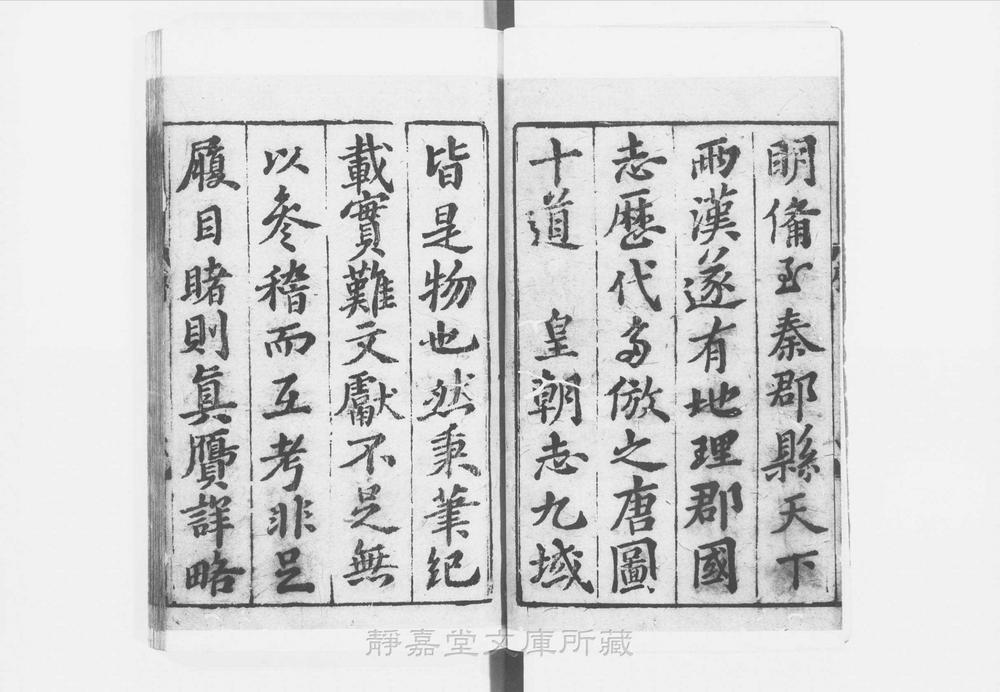 明備至秦郡縣天下
兩漢遂有地理郡國
志歷代多倣之唐圖
十道　皇朝志九域
皆是物也然秉筆紀
載實難文獻不足無
以參稽而互考非足
履目睹則真贗詳略
靜嘉堂文庫所藏